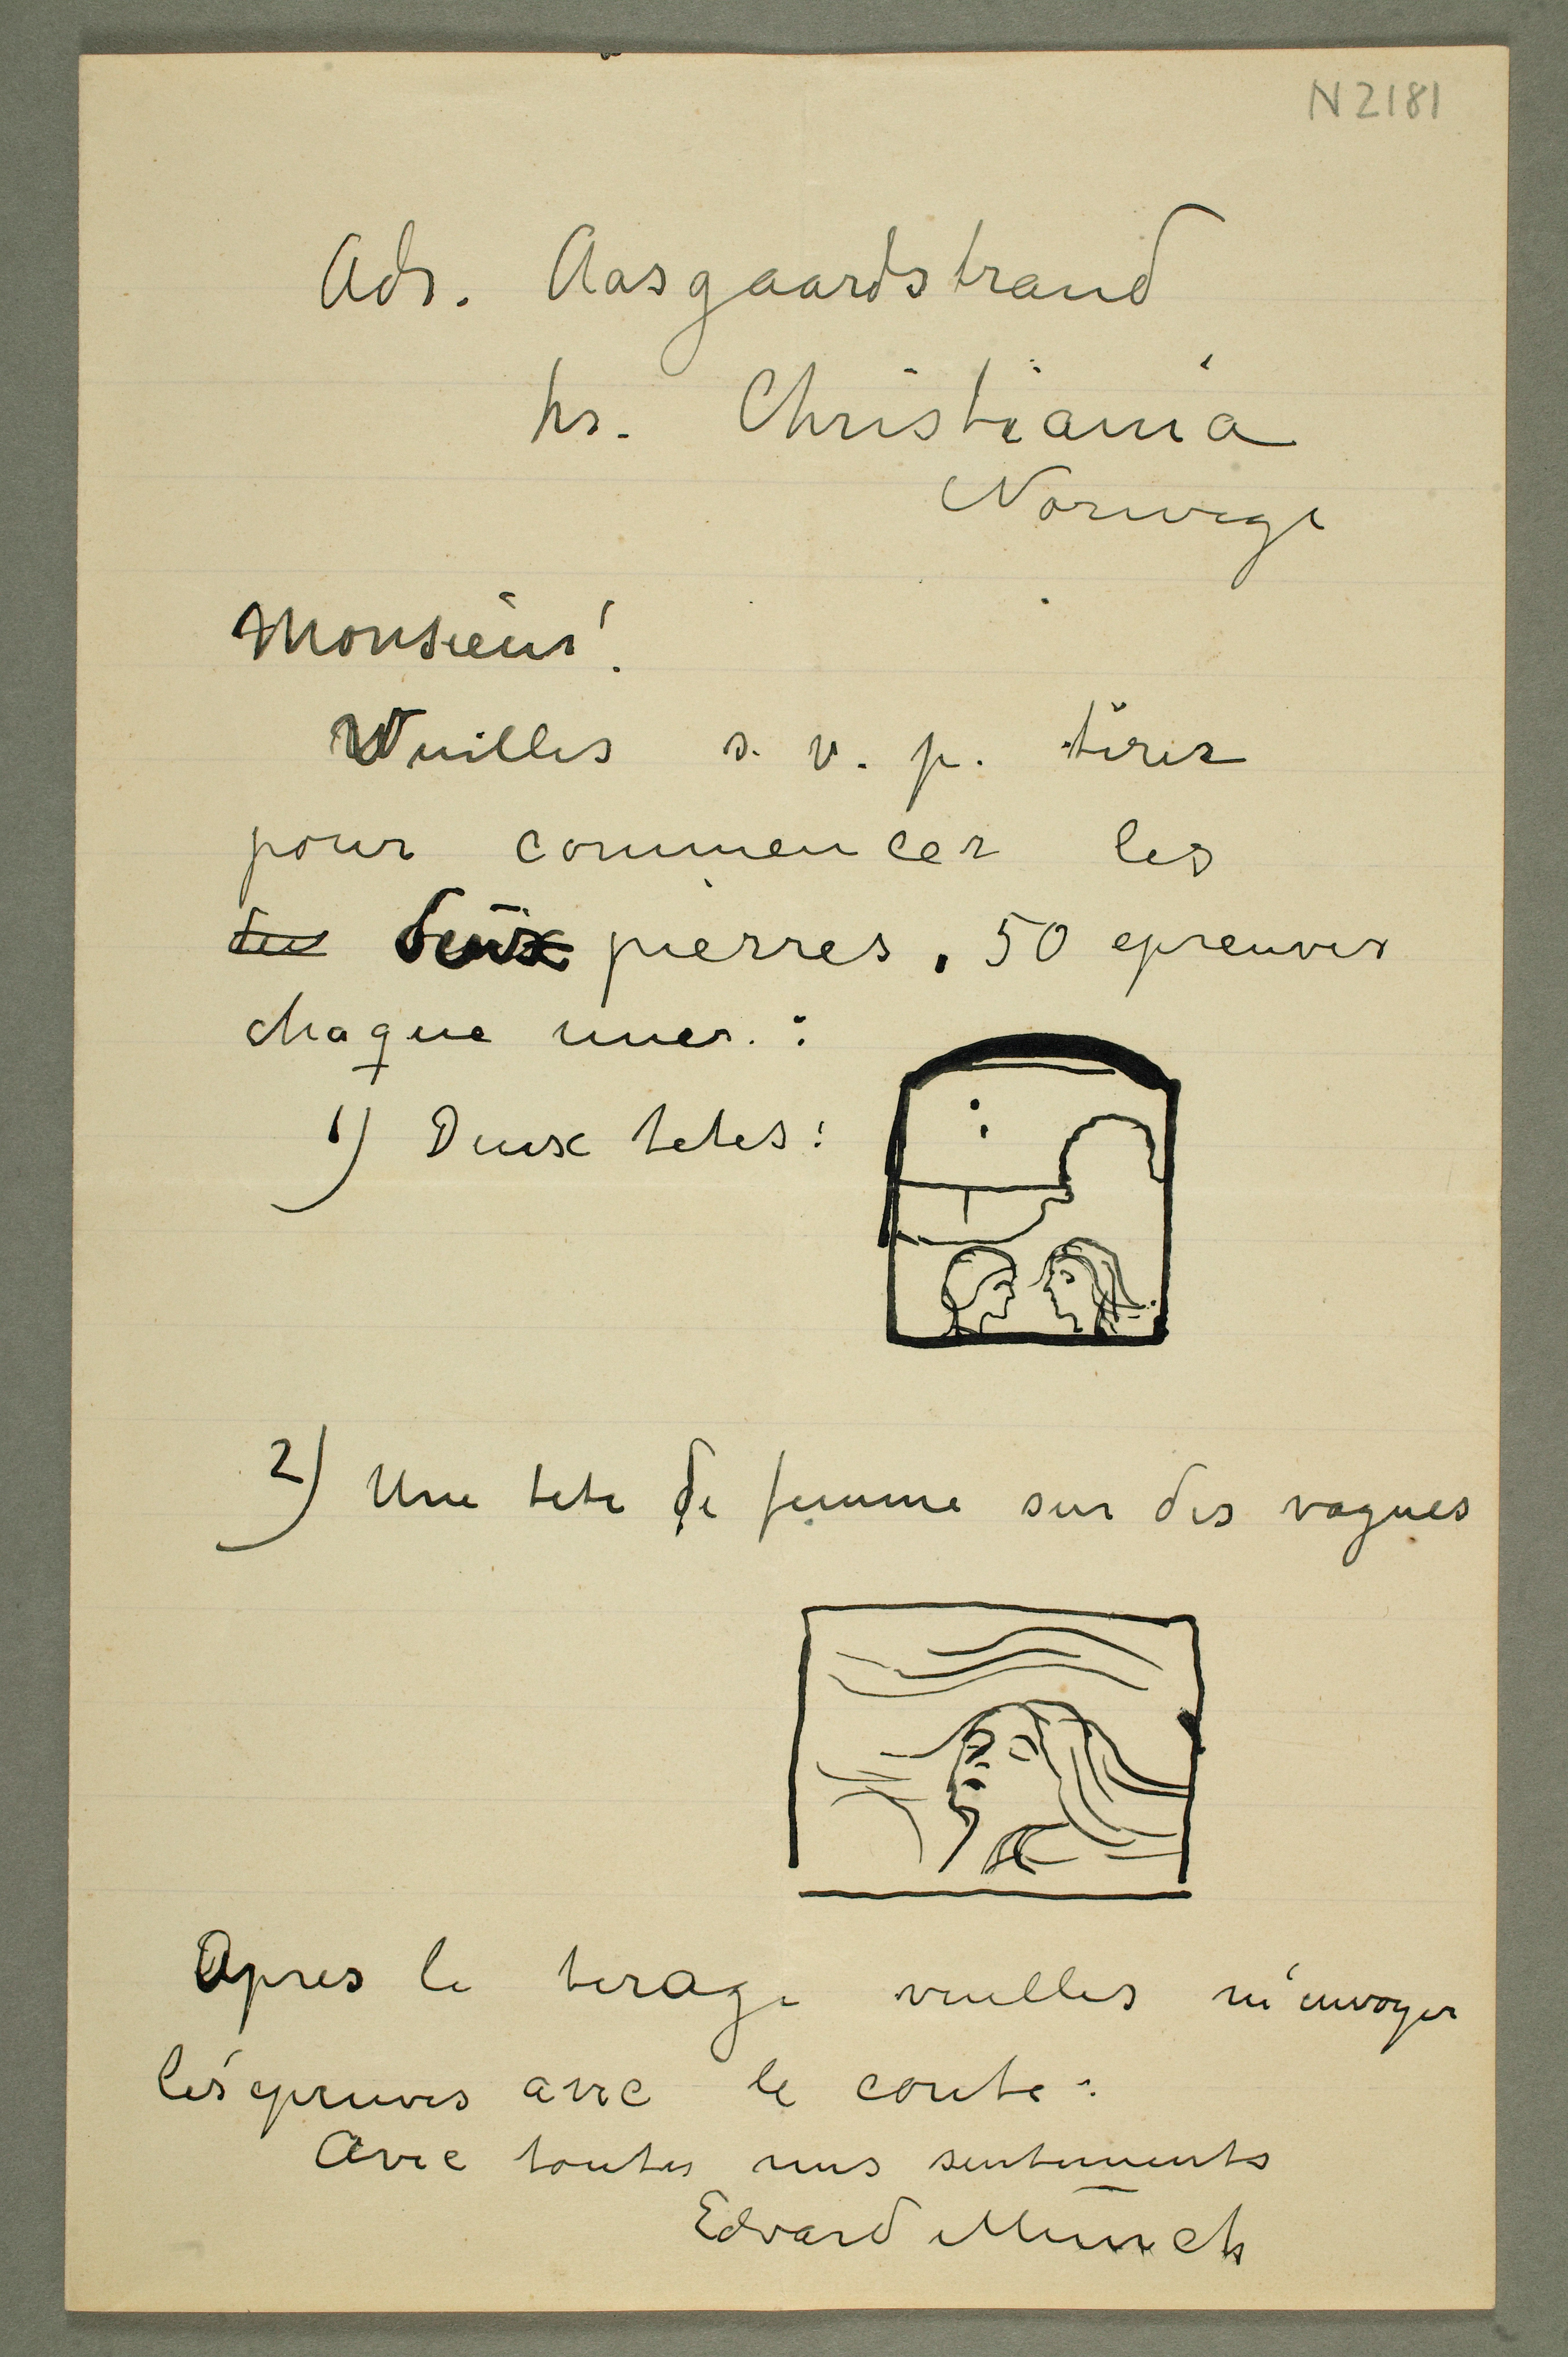 N 2181
Adr. Aasgaardstrand
pr. Christiania
Norwege
Monsieur!
Vuilles s. v. p. tirer
pour commencer les
deux pierres, 50 epreuves
chaque unes.:
1) Deux tetes:
2) Une tete de femme sur des vagues
Apres le tirage vuelles m'envoyer
les epreuves avec le conte:
Avec toutes mes sentiments
Edvard Munch